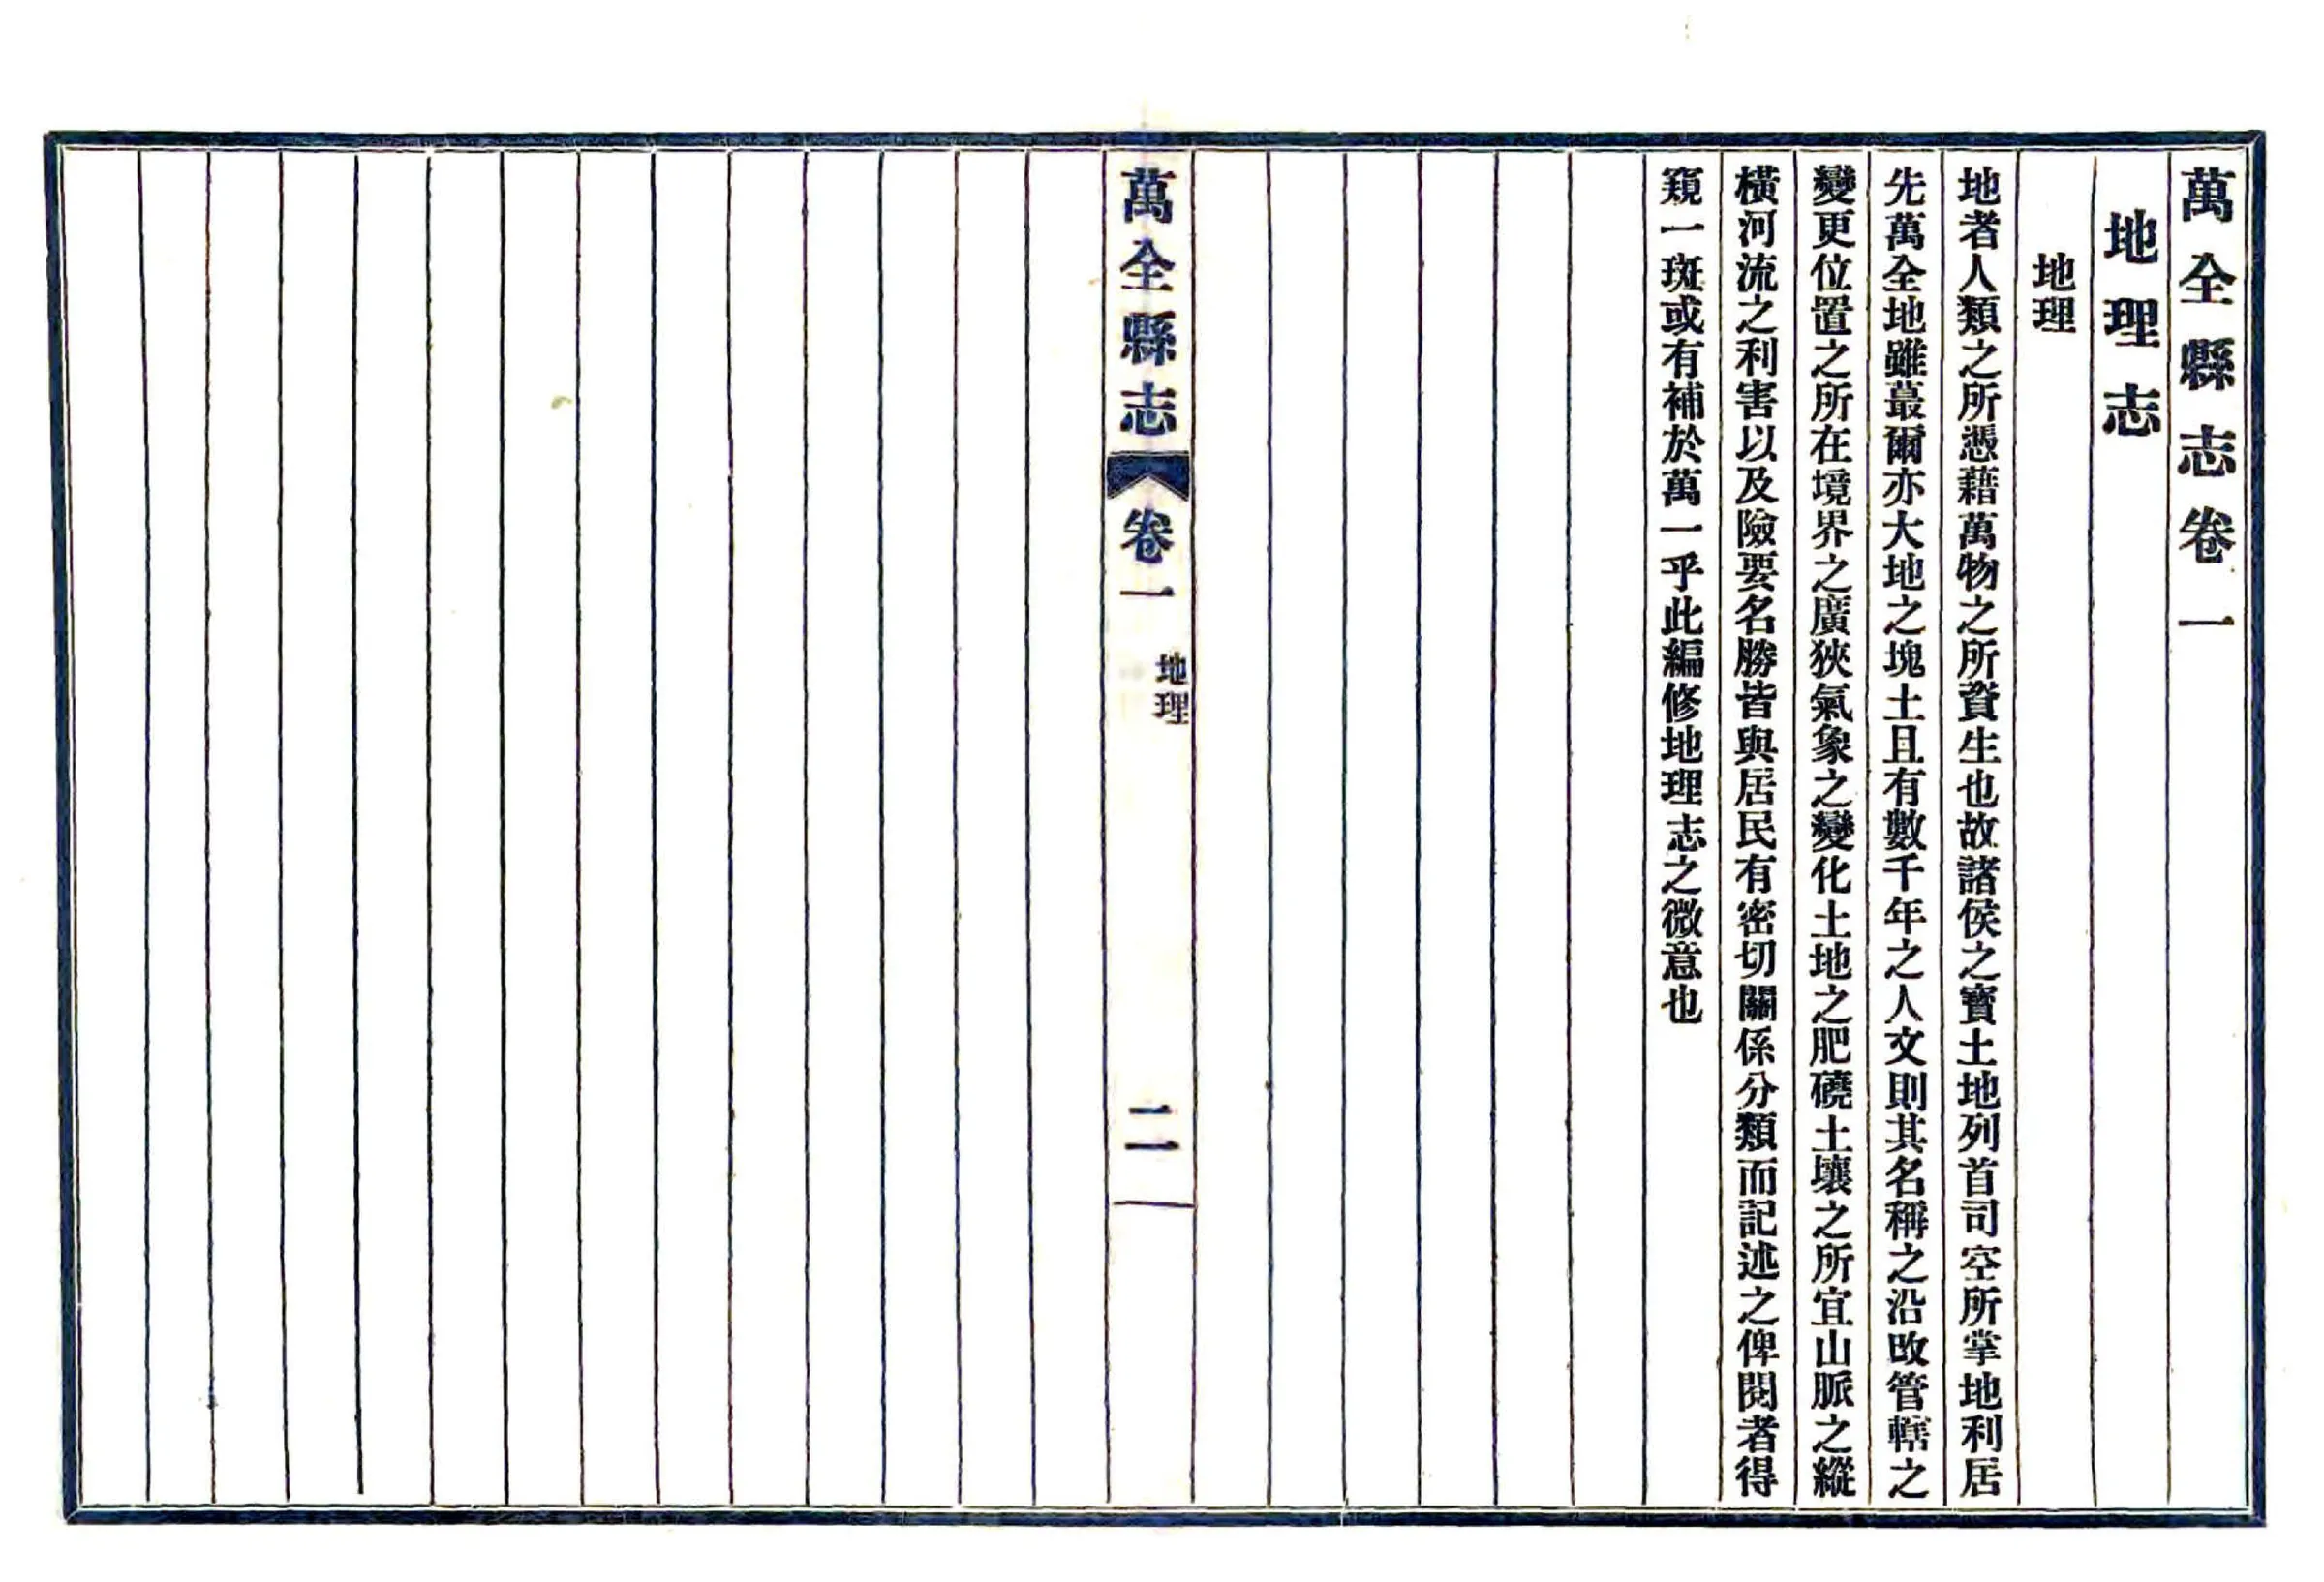 萬全縣志卷一
地理志
地理
地者人類之所憑藉萬物之所資生也故諸侯之寶土地列首司空所掌地利居
先萬全地雖蕞爾亦大地之塊土且有數千年之人文則其名稱之沿改管轄之
變更位置之所在境界之廣狹氣象之變化土地之肥磽土壤之所宜山脈之縱
橫河流之利害以及險要名勝皆與居民有密切關係分類而記述之俾閱者得
窺一斑或有補於萬一乎此編修地理志之微意也
萬全縣志
卷一
地理
二